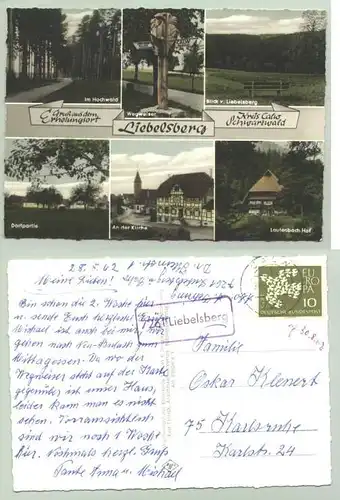 Im Hochwald
Wegweiser
Blick v. Liebelsberg
Gruß aus dem
Erholungsort
Liebelsberg
Kreis Calw
Schwarzwald
Dorfpartie
An der Kirche
Lautenbach Hof
28.5.62
Meine Lieben!
Bin schon die 2. Woche hier
u. sende Euch herzliche Grüße
Michael ist auch bei mir. Wir
gehen nach Neu-Bulach zum
Mittagessen. Da wo der
Wegweiser steht auf der Karte
gegenüber ist unser Haus,
leider kann man es nicht
sehen. Voraussichtlich
sind wir noch 1 Woche
hier. Nochmals herzl. Grüße
Tante Anna u. Michael
7261
7261 Liebelsberg
EUROPA
10
DEUTSCHE BUNDESPOST
Familie
Oskar Klenert
75 Karlsruhe
Karlstr. 24